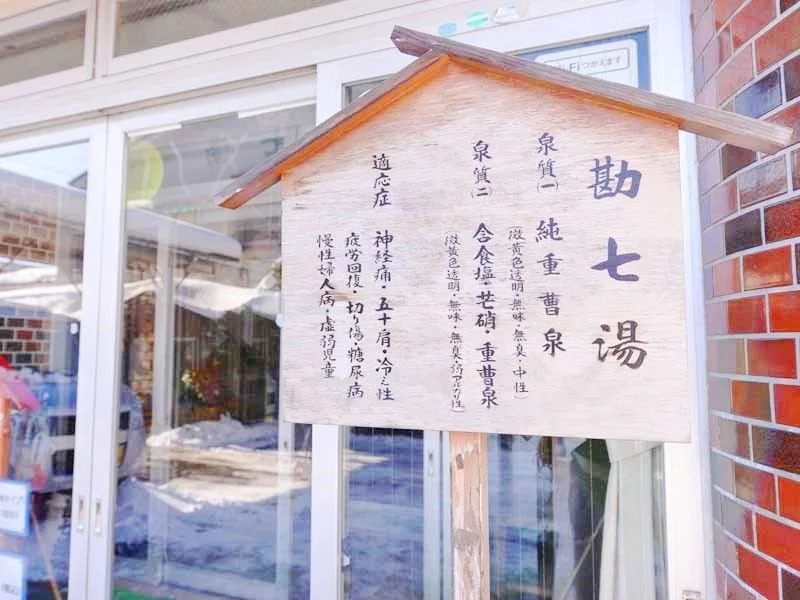 勘七湯
泉質(一) 純重曹泉
(微黄色透明・無味・無臭・中性)
泉質(二) 含食塩・芒硝・重曹泉
(微黄色透明・無味・無臭・弱アルカリ性)
適応症 神経痛・五十肩・冷え性
疲労回復・切り傷・糖尿病
慢性婦人病・虚弱児童
Fiつかえます